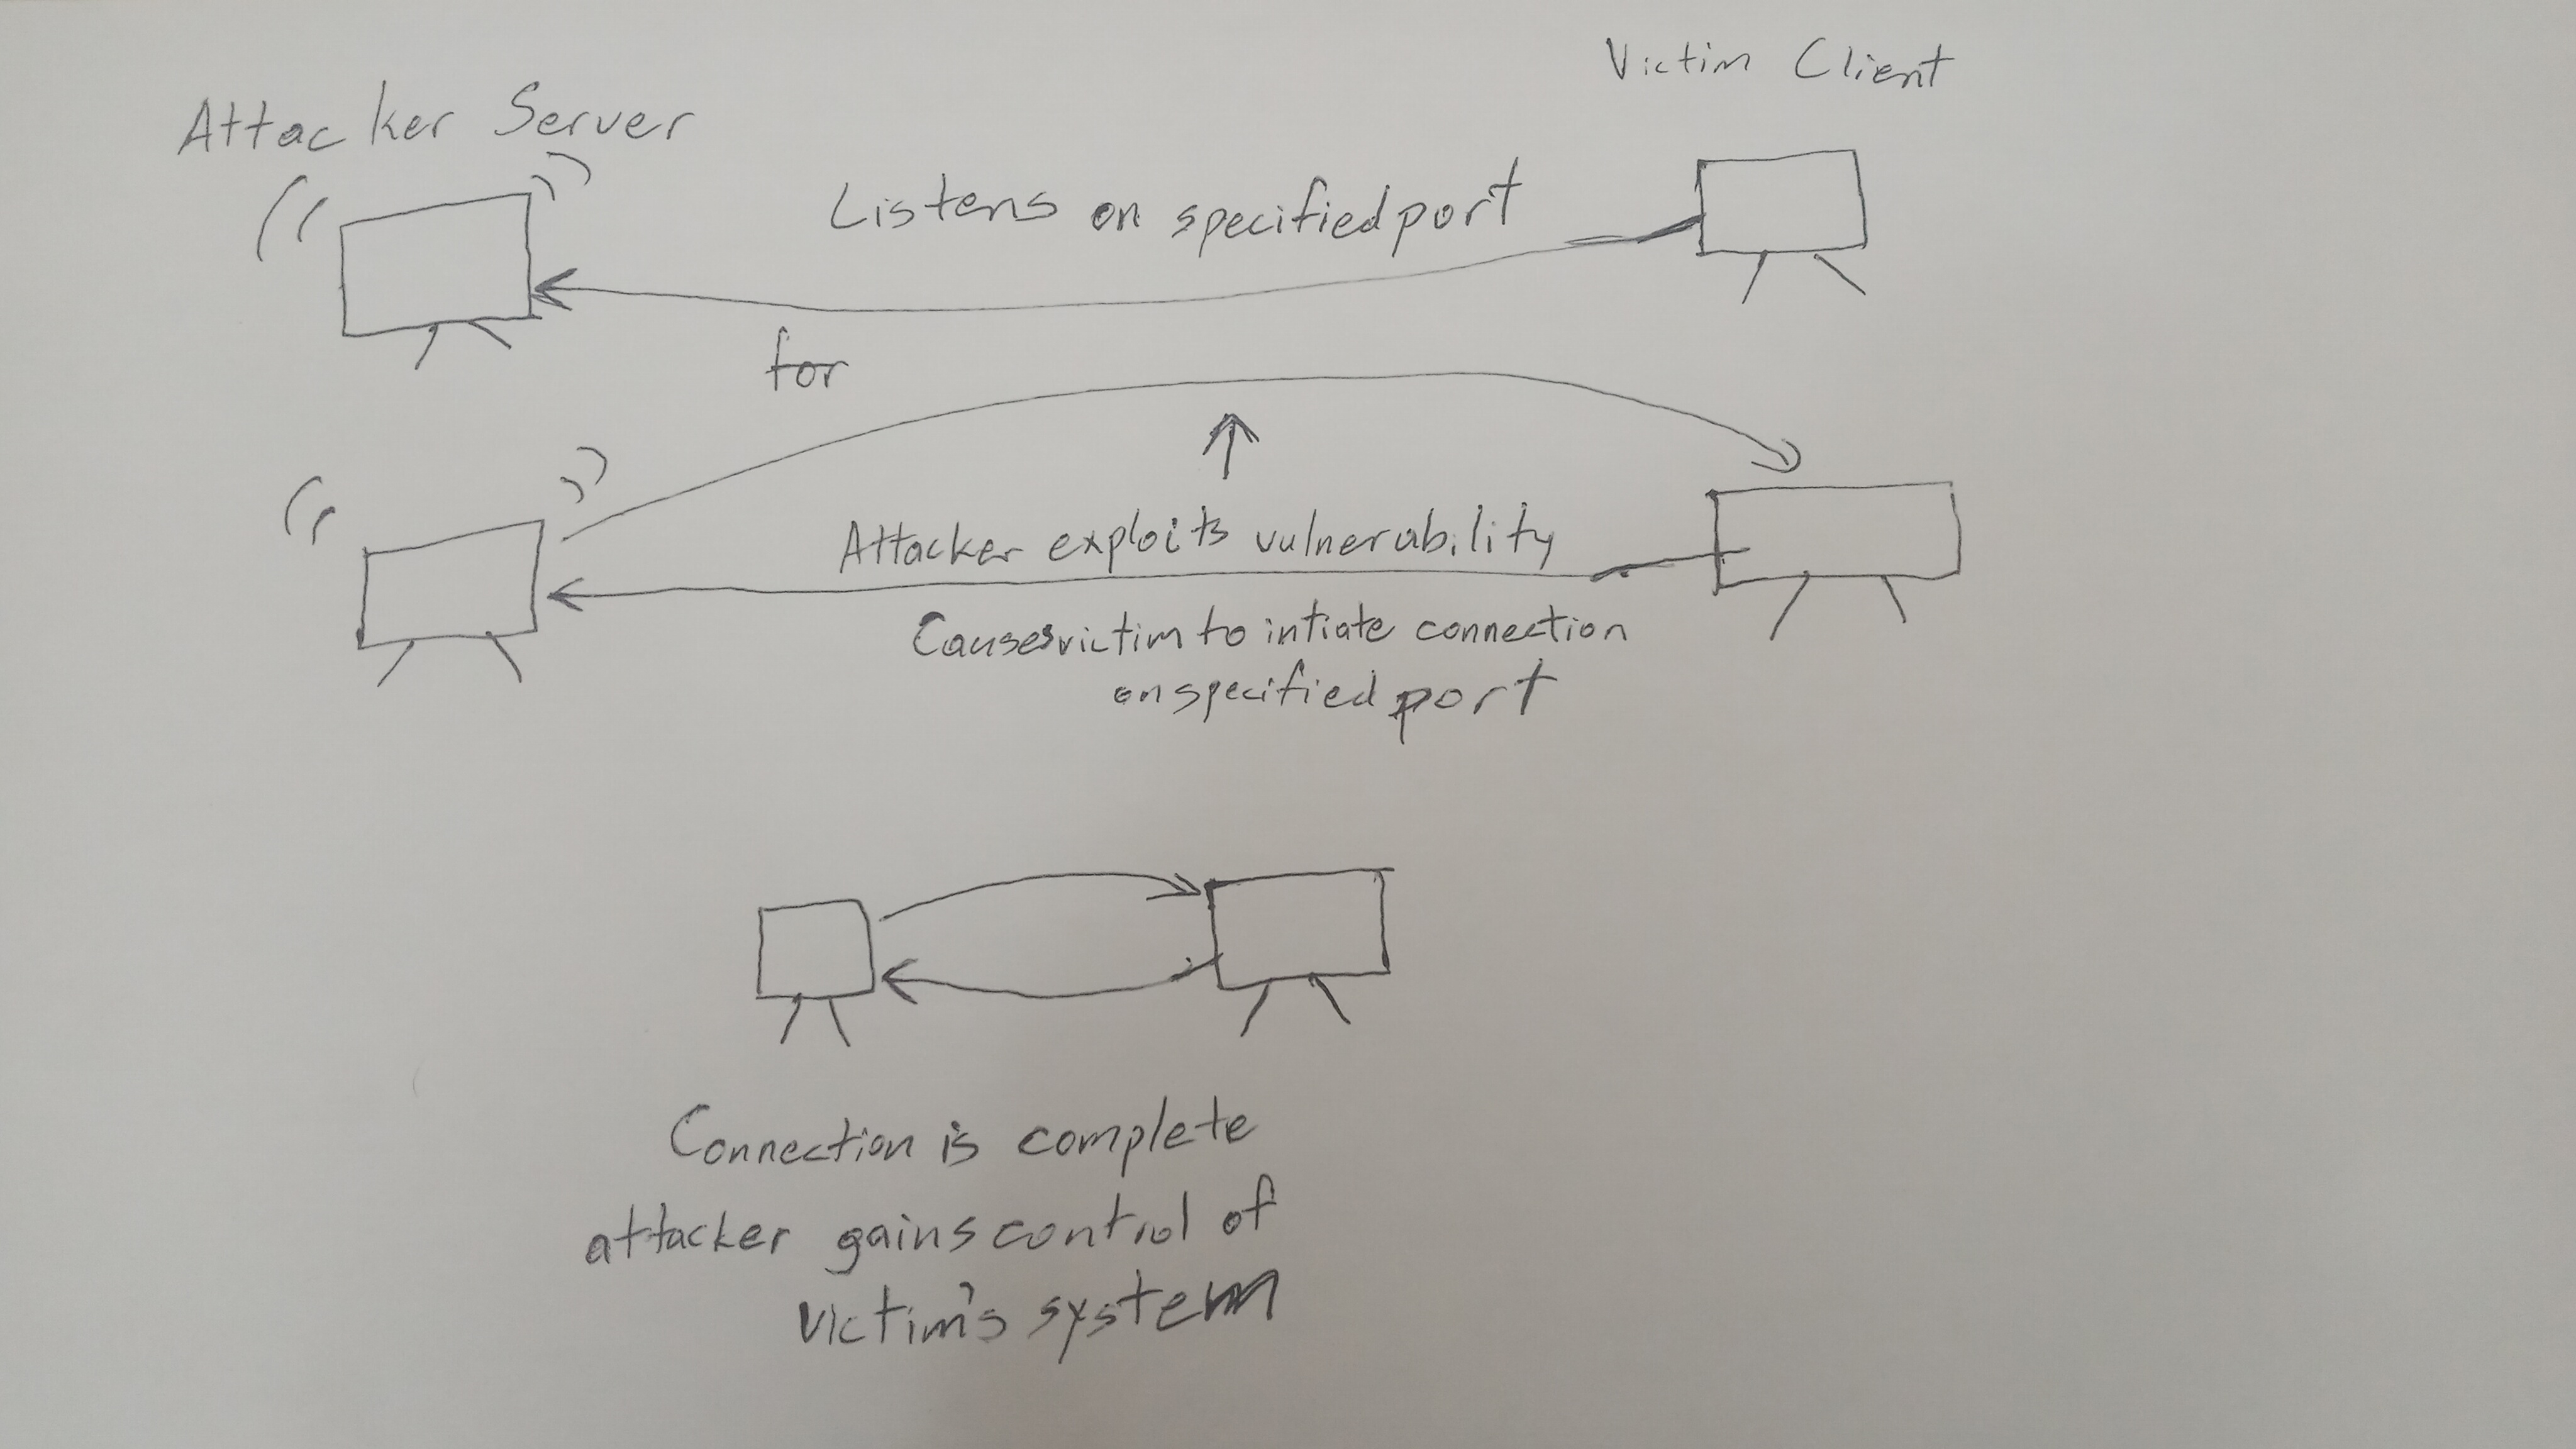 Victim Client
Attacker Server
Listens on specified port
for
Attacker exploits vulnerability
Causes victim to intiate connection
on specified port
Connection is complete
attacker gains control of
victim's system